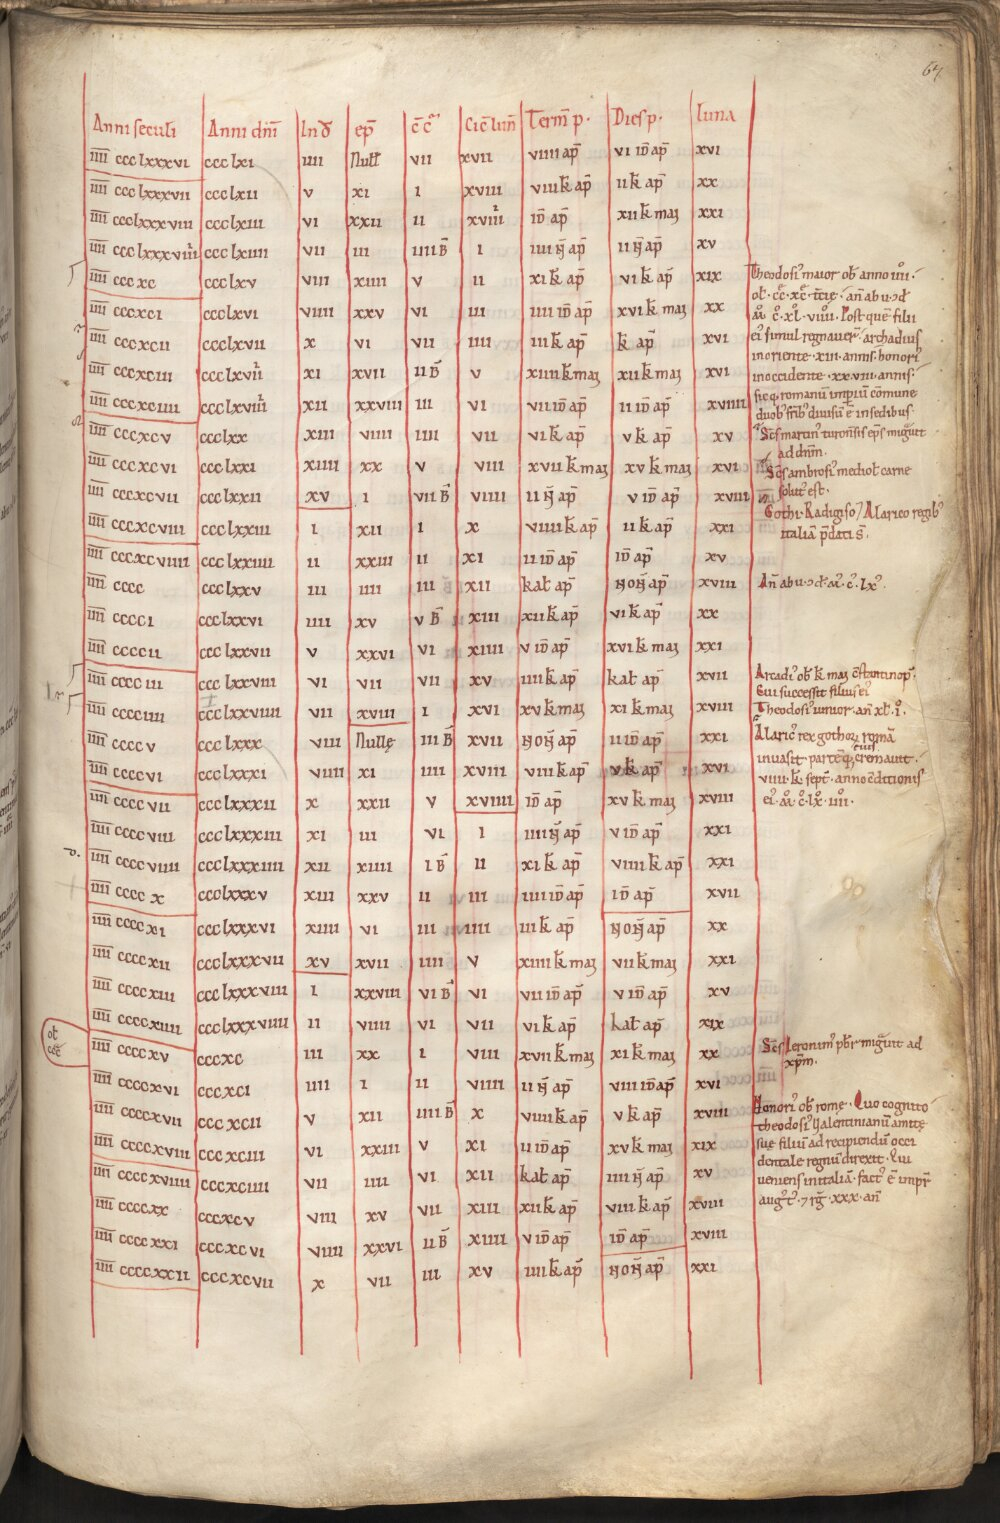 67
Anni seculi Anni dñi Ind ep̄ c̄c̄ Cicl lun̄ Term̄ p. Dies p. luna
IIII ccclxxxvi ccclxi IIII Null vii xvii viiii ap̄ vi id ap̄ xvi
IIII ccclxxxvii ccclxii v xi i xviii viii k ap̄ ii k ap̄ xx
IIII ccclxxxviii ccclxiii vi xxii ii xviiii id ap̄ xii k maj xxi
IIII ccclxxxviiii ccclxiiii vii iii iiii B i iiii ñ ap̄ ii ñ ap̄ xv
IIII cccxc ccclxv viii xiiii v ii xi k ap̄ vi k ap̄ xix
IIII cccxci ccclxvi viiii xxv vi iii iiii id ap̄ xvi k maj xx
IIII cccxcii ccclxvii x vi vii iiii iii k ap̄ k ap̄ xvi
IIII cccxciii ccclxviii xi xvii ii B v xiiii k maj xii k maj xvi
IIII cccxciiii ccclxviiii xii xxviii iii vi vii id ap̄ ii id ap̄ xviiii
IIII cccxcv ccclxx xiii viiii iiii vii vi k ap̄ v k ap̄ xv
IIII cccxcvi ccclxxi xiiii xx v viii xvii k maj xv k maj xvi
IIII cccxcvii ccclxxii xv i vii B viiii ii ñ ap̄ v id ap̄ xviii
IIII cccxcviii ccclxxiii i xii i x viiii k ap̄ ii k ap̄ xxi
IIII cccxcviiii ccclxxiiii ii xxiii ii xi ii id ap̄ id ap̄ xv
IIII cccc ccclxxv iii iiii iii xii kal ap̄ ñoñ ap̄ xviii
IIII cccci ccclxxvi iiii xv v B xiii xii k ap̄ vi k ap̄ xx
IIII ccccii ccclxxvii v xxvi vi xiiii v id ap̄ xvi k maj xxi
IIII cccciii ccclxxviii vi vii vii xv iiii k ap̄ kal ap̄ xvii
IIII cccciiii ccclxxviiii vii xviii i xvi xv k maj xi k maj xviii
IIII ccccv ccclxxx viii Nulle iii B xvii ñoñ ap̄ ii id ap̄ xxi
IIII ccccvi ccclxxxi viiii xi iiii xviii viii k ap̄ v k ap̄ xvi
IIII ccccvii ccclxxxii x xxii v xviiii id ap̄ xv k maj xviii
IIII ccccviii ccclxxxiii xi iii vi i iiii ñ ap̄ v id ap̄ xxi
IIII ccccviiii ccclxxxiiii xii xiiii i B ii xi k ap̄ viiii k ap̄ xxi
IIII ccccx ccclxxxv xiii xxv ii iii iiii id ap̄ id ap̄ xvii
IIII ccccxi ccclxxxvi xiiii vi iii iiii iii k ap̄ ñoñ ap̄ xx
IIII ccccxii ccclxxxvii xv xvii iiii v xiiii k maj vii k maj xxi
IIII ccccxiii ccclxxxviii i xxviii vi B vi vii id ap̄ v id ap̄ xv
IIII ccccxiiii ccclxxxviiii ii viiii vi vii vi k ap̄ kal ap̄ xix
IIII ccccxv cccxc iii xx i viii xvii k maj xi k maj xx
IIII ccccxvi cccxci iiii i ii viiii ii ñ ap̄ viii id ap̄ xvi
IIII ccccxvii cccxcii v xii iiii B x viiii k ap̄ v k ap̄ xviii
IIII ccccxviii cccxciii vi xxiii v xi ii id ap̄ xv k maj xix
IIII ccccxviiii cccxciiii vii iiii vi xii kal ap̄ iiii ñ ap̄ xv
IIII ccccxx cccxcv viii xv vii xiii xii k ap̄ viii k ap̄ xviii
IIII ccccxxi cccxcvi viiii xxvi ii B xiiii v id ap̄ id ap̄ xviii
IIII ccccxxii cccxcvii x vii iii xv iiii k ap̄ ñoñ ap̄ xxi
Theodosi' maior ob' anno iiii.
ol'. cc. xc. tcie. añ ab u. cd'
ā. c. xl. viiii. Post quē filii
ei' simul regnauer̄. archadius
in oriente. xiii. annis. honori'
in occidente. xx.viii. annis.
sicq; romanū impiū cōmune
duob' frīb' diuisū ē in sedibus.
Scs martin' turonsis eps migūit
ad dnm.
Scs ambrosi' mediol carne
solut' est.
Gothi. Radigiso / Alarico regib'
italiā p̄dati s̄.
Añ ab u. cd' ā. c. lx.
Arcadi' ob' k maj cōstantinop'.
Cui successit filius ei'
Theodosi' iunior. añ xl. i.
Alaric' rex gothoꝝ romā
inuasit partēq; ei' cremauit.
viiii. k. sept. anno cōditionis
ei'. ā. c. lx. iiii.
Scs Ieronim' pbr migūit ad
xpm.
Honori' ob' rome. Quo cognito
theodosi' Ualentinianū amite
sue filiū ad recipiendū occi
dentale regnū direxit. Qui
ueniens in italiā. fact' ē impr
aug't'. ⁊ rḡ. xxx. añ